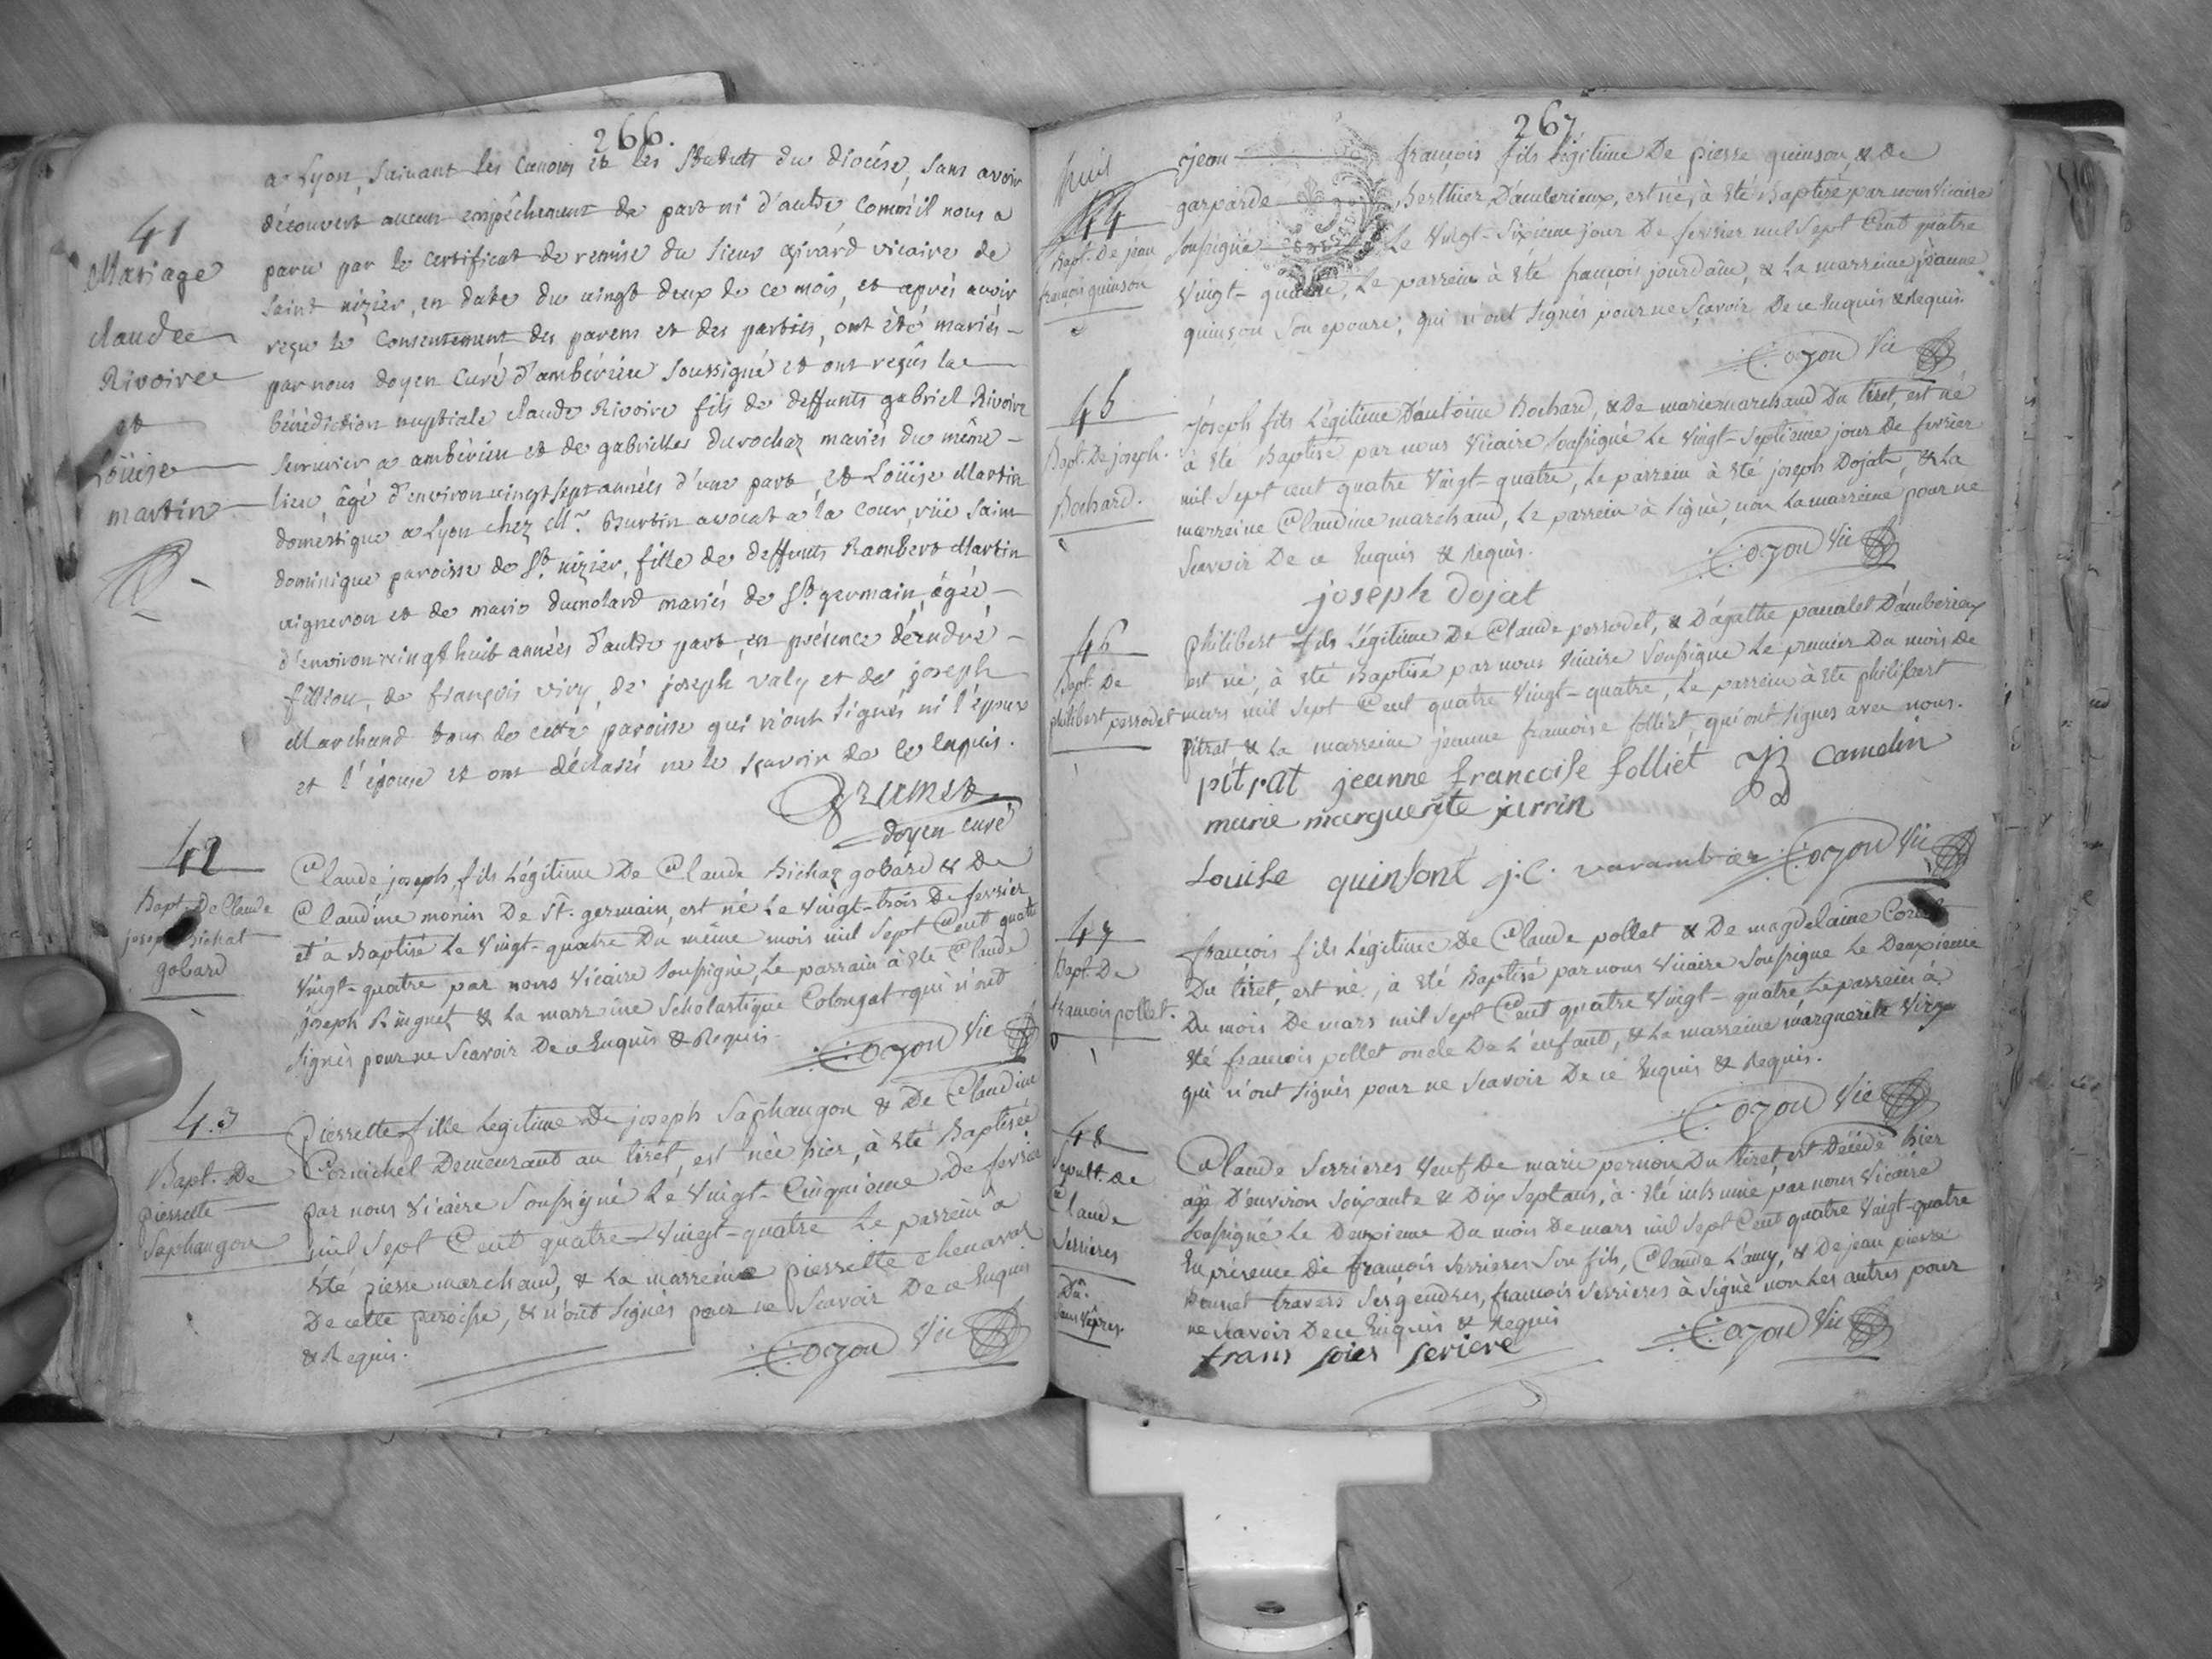 266.
41
Mariage
claude
Rivoire
et
Loüise
martin
a Lyon, suivant les canons et les statuts du diocése, sans avoir
découvert aucun empêchement de part ni d'autre, comm'il nous a
paru par le certificat de remise du sieur girard vicaire de
saint nizier, en date du vingt deux de ce mois, et aprés avoir
reçu le consentement des parens et des parties, ont été mariés
par nous doyen curé d'ambérieu soussigné et ont reçûs la
bénédiction nuptiale claude Rivoire fils de deffunts gabriel Rivoire
serrurier a ambérieu et de gabrielle durochaz mariés du même
lieu, âgé d'environ vingt sept années d'une part, et Loüise Martin
doméstique a Lyon chez Mr. Burtin avocat a la cour, rüe saint
dominique paroisse de St. nizier, fille de deffunts Rambert Martin
vigneron et de marie dumolard mariés de St. germain, âgée
d'environ vingt huit années d'autre part, en présence d'andré
fillion, de françois vivy, de joseph valy et de joseph
Marchand tous de cette paroisse qui n'ont signés ni l'époux
et l'épouse et ont déclarés ne le sçavoir de ce enquis.
Grumet
doyen curé
42
Bapt. De Claude
joseph Bichat
gobard
Claude joseph, fils Légitime De Claude Bichaz gobard & De
Claudine monin De St. germain, est né Le Vingt-trois De fevrier
et à Baptisé Le Vingt-quatre Du même mois mil Sept Cent quatre
Vingt-quatre par nous Vicaire Soussigné, Le parrain à Eté Claude
joseph Ringuet & La marraine Scholastique Colongat qui n'ont
Signés pour ne Scavoir De ce Enquis & Requis.
Cozon Vic
43
Bapt. De
pierrette
Saphangon
Pierrette fille Legitime De joseph Saphangon & De Claudine
Cornichet Demeurant au tiret, est née hier, à Eté Baptisée
par nous Vicaire Soussigné Le Vingt-Cinquieme De fevrier
mil Sept Cent quatre-Vingt-quatre Le parrein à
Eté pierre marchand, & La marreine pierrette chenavaz
De cette paroisse, & n'ont Signés pour ne Scavoir De ce Enquis
& Requis.
Cozon Vic
267
huit
44
Bapt. De jean
françois quinson
jean françois fils légitime De pierre quinson & de
gasparde Berthier D'amberieux, est né, à Eté Baptisé par nous Vicaire
Soussigné Le Vingt-Sixieme jour De fevrier mil Sept Cent quatre
Vingt-quatre, Le parrein à Eté françois jourdain, & La marreine jeanne
quinson Son epouse, qui n'ont Signés pour ne Sçavoir De ce Enquis & Requis.
Cozon Vic
45
Bapt. De joseph
Bochard.
joseph fils Légitime D'antoine Bochard, & De marie marchand Du tiret, est né
à Eté Baptisé par nous Vicaire Soussigné Le Vingt-Septième jour De fevrier
mil Sept cent quatre Vingt-quatre, Le parrein à Eté joseph Dojat, & La
marreine Claudine marchand, Le parrein à Signé, non La marreine pour ne
Scavoir De ce Enquis & Requis.
Cozon Vic
joseph dojat
46
Bapt. De
philibert perrodet
philibert fils Légitime De Claude perrodet, & D'agathe D'amberieux
est né, à Eté Baptisé par nous Vicaire Soussigné Le premier Du mois De
mars mil Sept Cent quatre Vingt-quatre, Le parrein à Eté philibert
pitrat & La marreine jeanne francoise folliet, qui ont Signés avec nous.
pitrat jeanne francoise folliet camelin
marie marguerite jarrin
Louise quinsont j.C. varambier Cozon Vic
47
Bapt. De
françois pollet.
françois fils Légitime De Claude pollet & De magdelaine
Du tiret, est né, à Eté Baptisé par nous Vicaire Soussigné Le Deuxieme
Du mois De mars mil Sept Cent quatre Vingt-quatre, Le parrein à
Eté françois pollet oncle De L'enfant, & La marreine marguerite
qui n'ont Signés pour ne Scavoir De ce Enquis & Requis.
Cozon Vic
48
Sepult. de
Claude
Serrieres
Claude Serrieres Veuf De marie pernon Du tiret, est Décédé hier
agé D'environ Soixante & Dix Sept ans, à Eté inhumé par nous Vicaire
Soussigné Le Deuxieme Du mois De mars mil Sept Cent quatre Vingt-quatre
En présence De françois Serrieres Son fils, Claude L'amy, & De jean pierre
Bonnet travers Ses gendres, françois Serrieres à Signé non Les autres pour
ne scavoir De ce Enquis & Requis
Cozon Vic
frans soies seriere